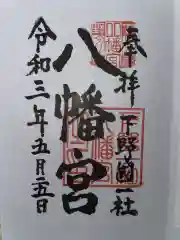 奉拝
下野國一社
八幡宮
令和三年五月二五日